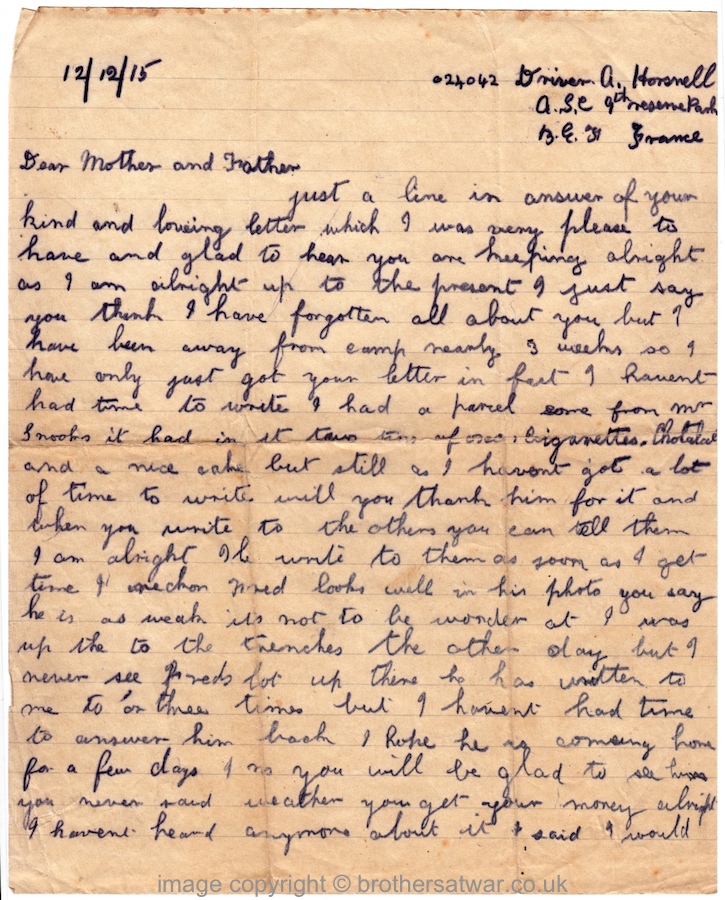 12/12/15
024042 Driver. A. Horsnell
A.S.C 9th reserve Park
B.E.F France
Dear Mother and Father
just a line in answer of your
kind and loveing letter which I was very please to
have and glad to hear you are keeping alright
as I am alright up to the present I just say
you think I have forgotten all about you but I
have been away from camp nearly 3 weeks so I
have only just got your letter in fact I havent
had time to write I had a parcel come from Mr
Snooks it had in it tins of Cigarettes. Chocolate
and a nice cake but still as I havent got a lot
of time to write will you thank him for it and
when you write to the others you can tell them
I am alright Ile write to them as soon as I get
time I reckon Fred looks well in his photo you say
he is as weak its not to be wonder at I was
up the to the trenches the other day but I
never see Freds lot up there he has written to
me to or three times but I havent had time
to answer him back I Hope he is comeing home
for a few days I no you will be glad to see him
you never said weather you get your money alright
I havent heard anymore about it I said I would
image copyright © brothersatwar.co.uk